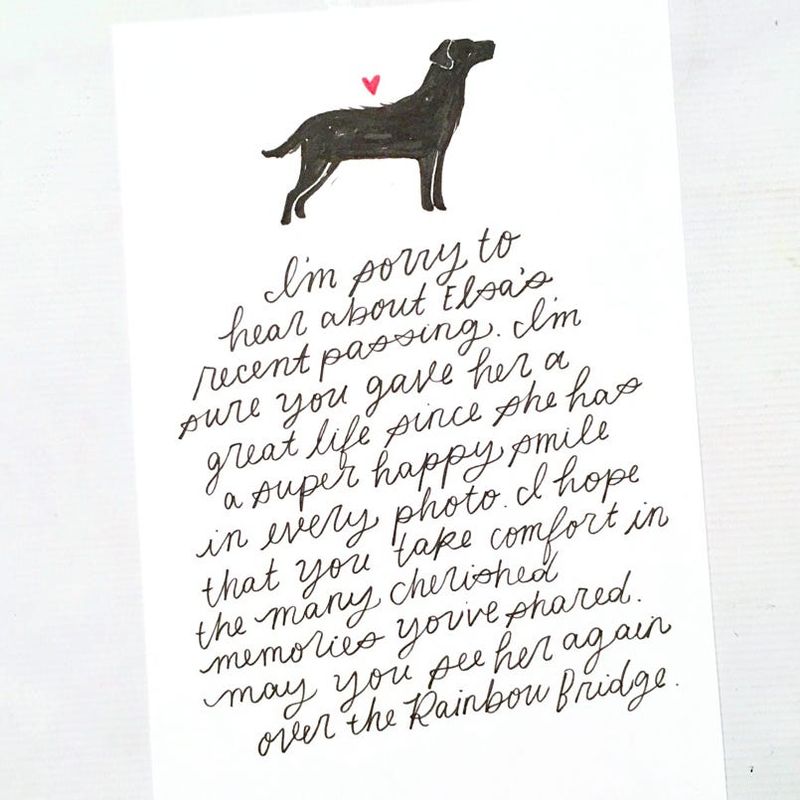 I'm sorry to
hear about Elsa's
recent passing. I'm
sure you gave her a
great life since she has
a super happy smile
in every photo. I hope
that you take comfort in
the many cherished
memories you've shared.
may you see her again
over the Rainbow Bridge.